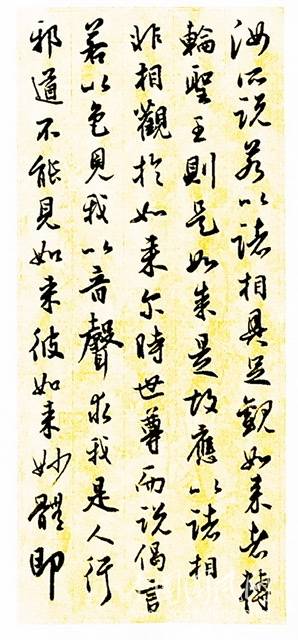 汝所說若以諸相具足觀如來者轉
輪聖王則是如來是故應以諸相
非相觀於如來尔時世尊而說偈言
若以色見我以音聲求我是人行
邪道不能見如來彼如來妙體即